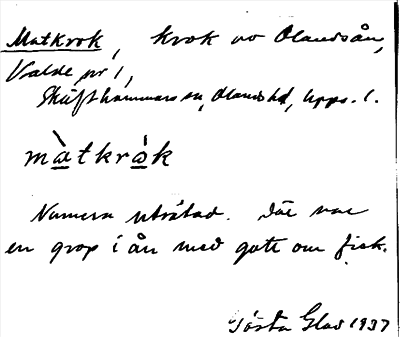 Matkrok, krok av Olandsån,
Valde nr 1,
Skäfthammars sn, Olands hd, Upps. l.
màtkrɔ̀k
Numera uträtad. Där var
en grop i ån med gott om fisk.
Gösta Glad 1937